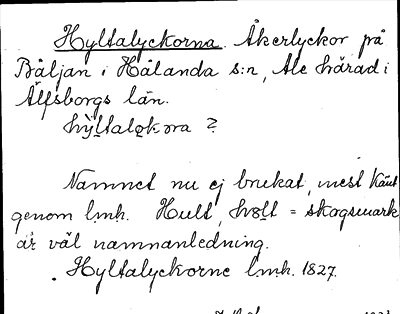 Hyltalyckorna Åkerlyckor på
Båljan i Hålanda s:n, Ale härad i
Älfsborgs län.
hỳltaløkora ?
Namnet nu ej brukat, mest känt
genom lmh. Hult, hɷlt = skogsmark
är väl namnanledning.
Hyltalyckorne lmh. 1827.